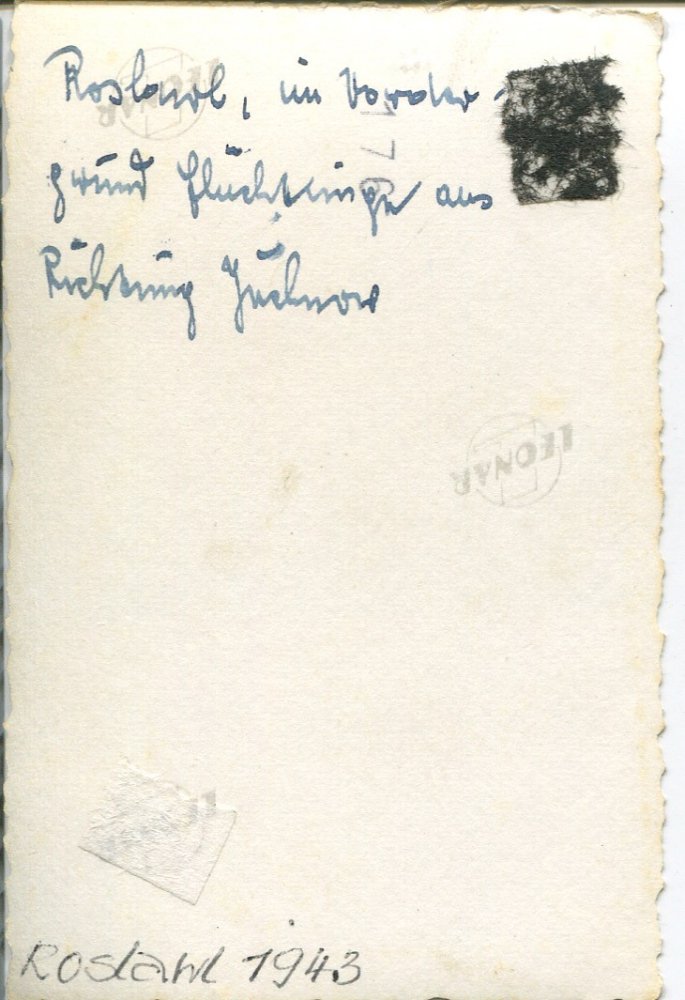 Roslawl, im Vorder-
grund Flüchtlinge aus
Richtung Juchnow
LEONAR
LEONAR
Roslawl 1943